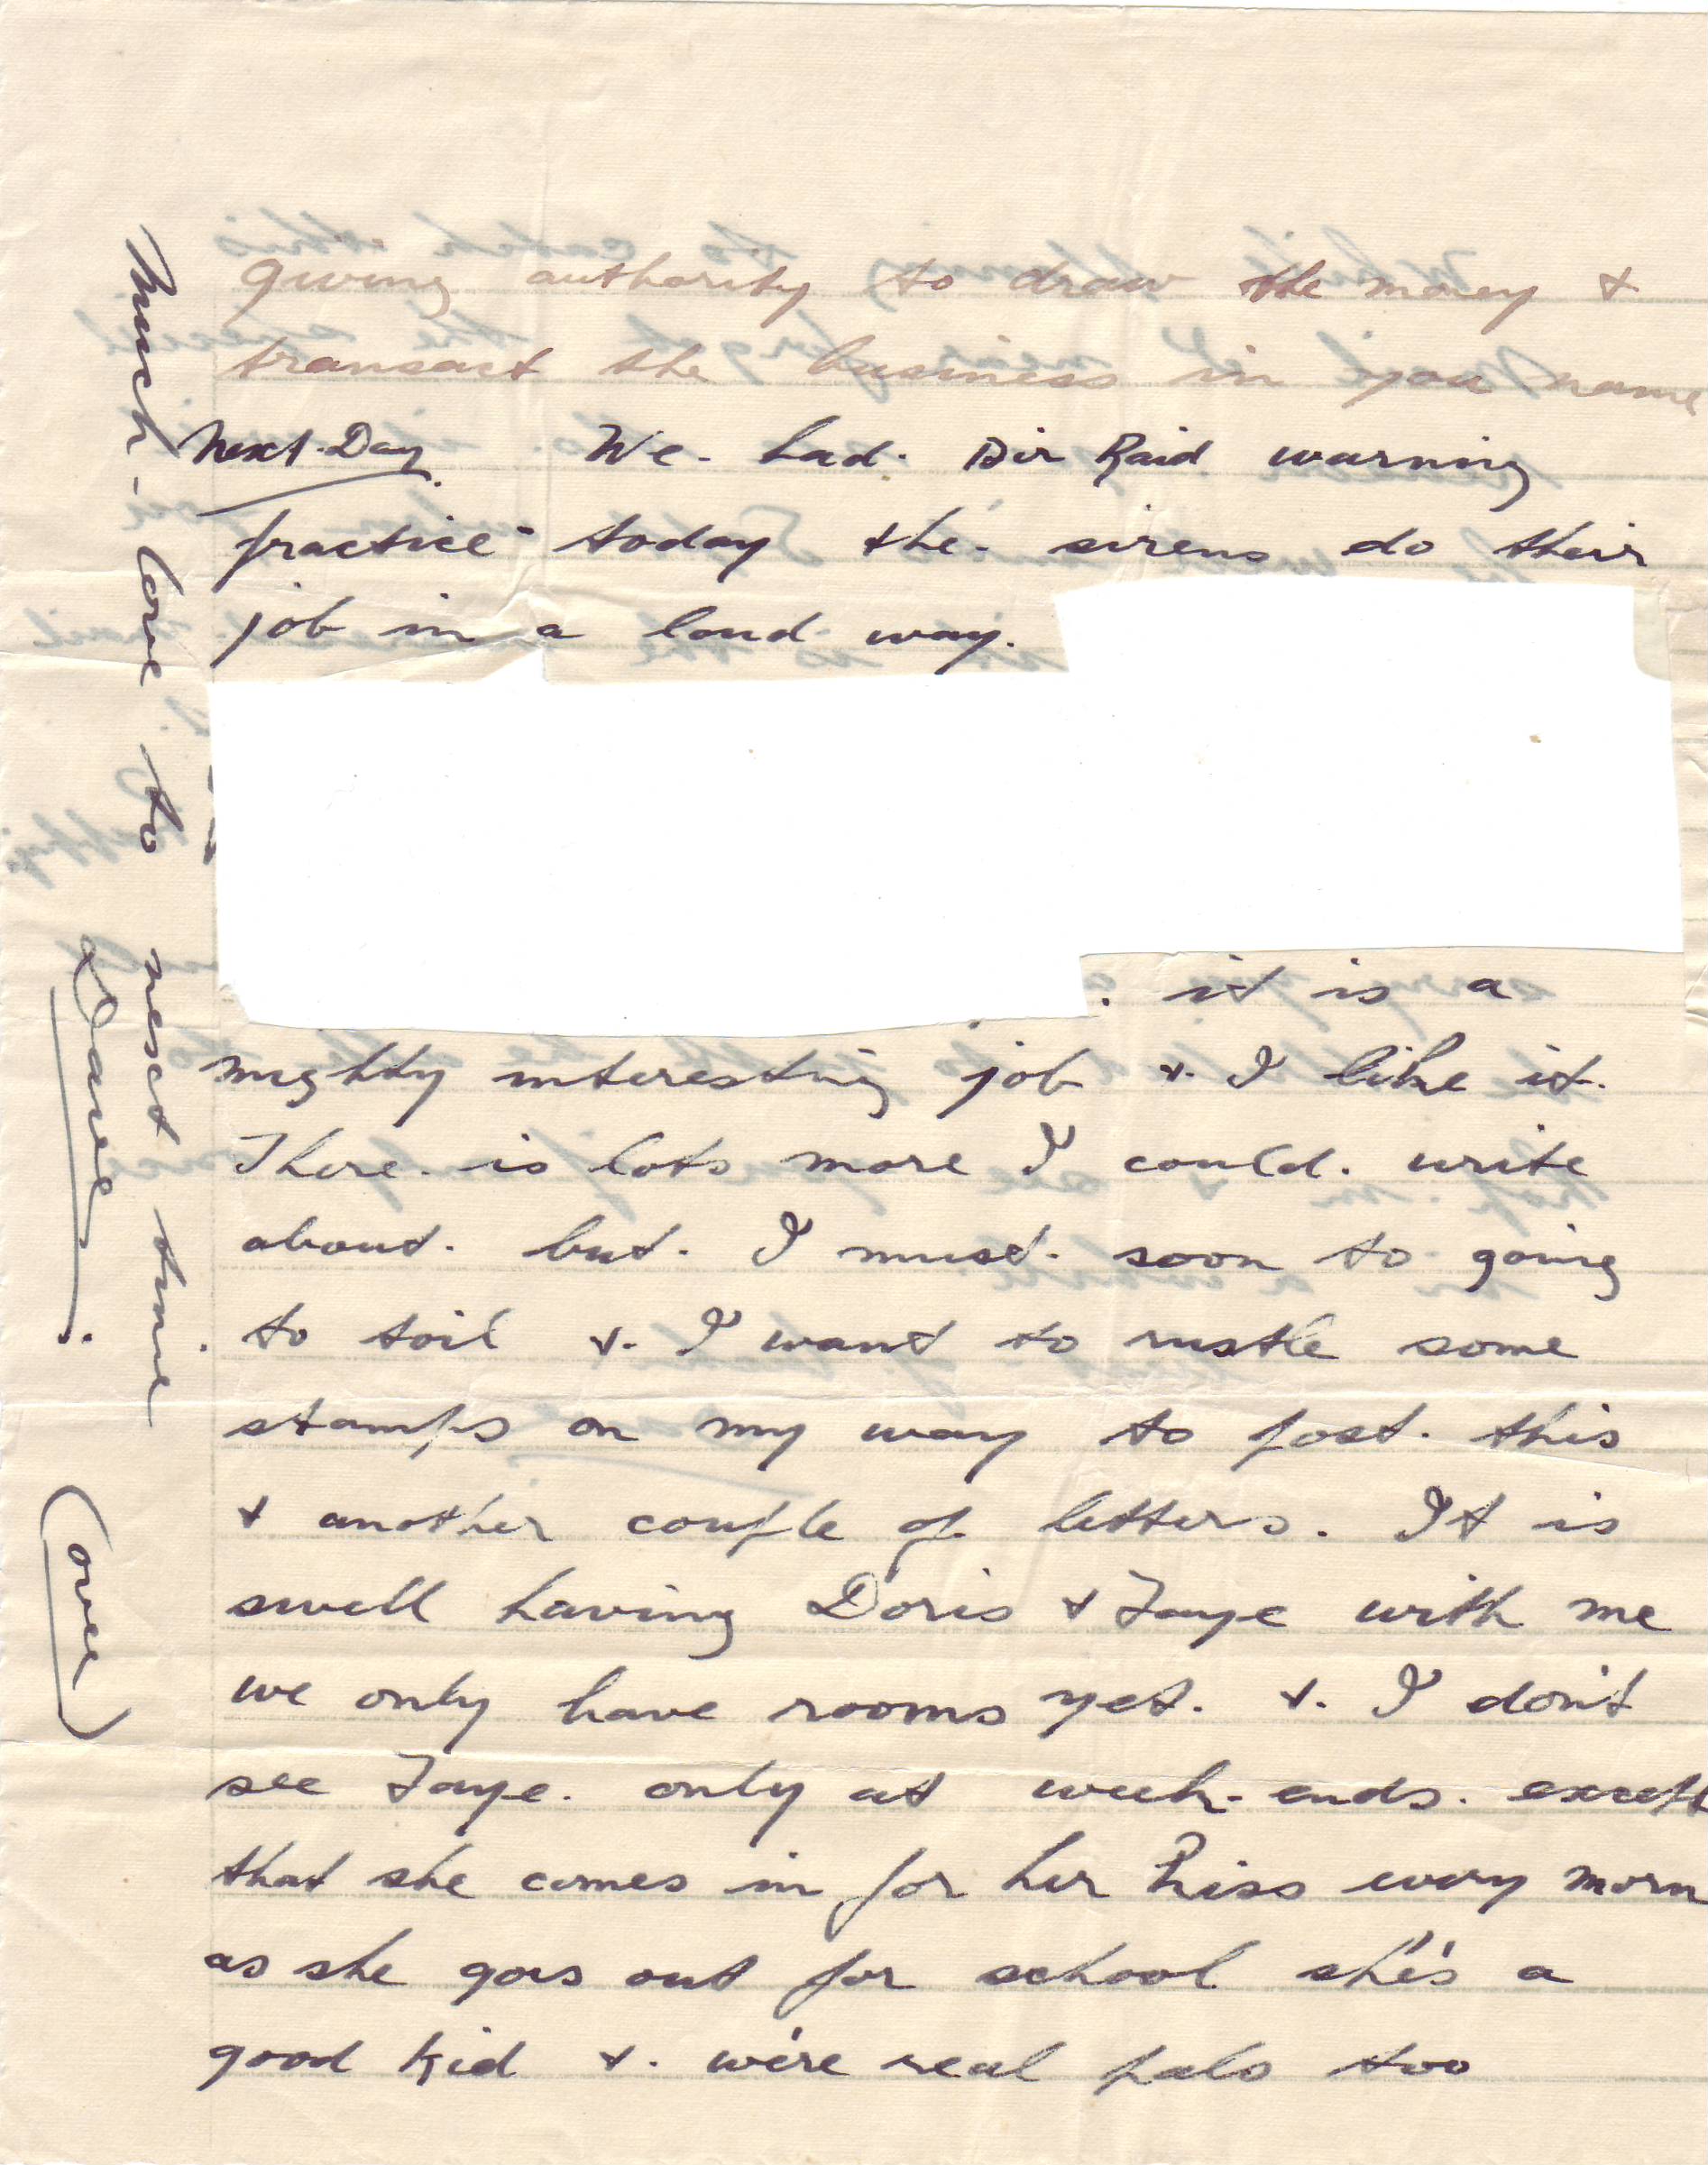 giving authority to draw the money &
transact the business in you name
Next Day. We had. Air Raid warning
practice today the sirens do their
job in a loud way.
. it is a
mighty interesting job & I like it.
There is lots more I could. write
about. but. I must. soon to going
to toil &. I want to rustle some
stamps on my way to post. this
& another couple of letters. It is
swell having Doris & Faye with me
we only have rooms yet. &. I don't
see Faye. only at week-ends. except
that she comes in for her kiss every morn
as she goes out for school she's a
good kid &. we're real pals too
Much love to next time
Dave.
(over)